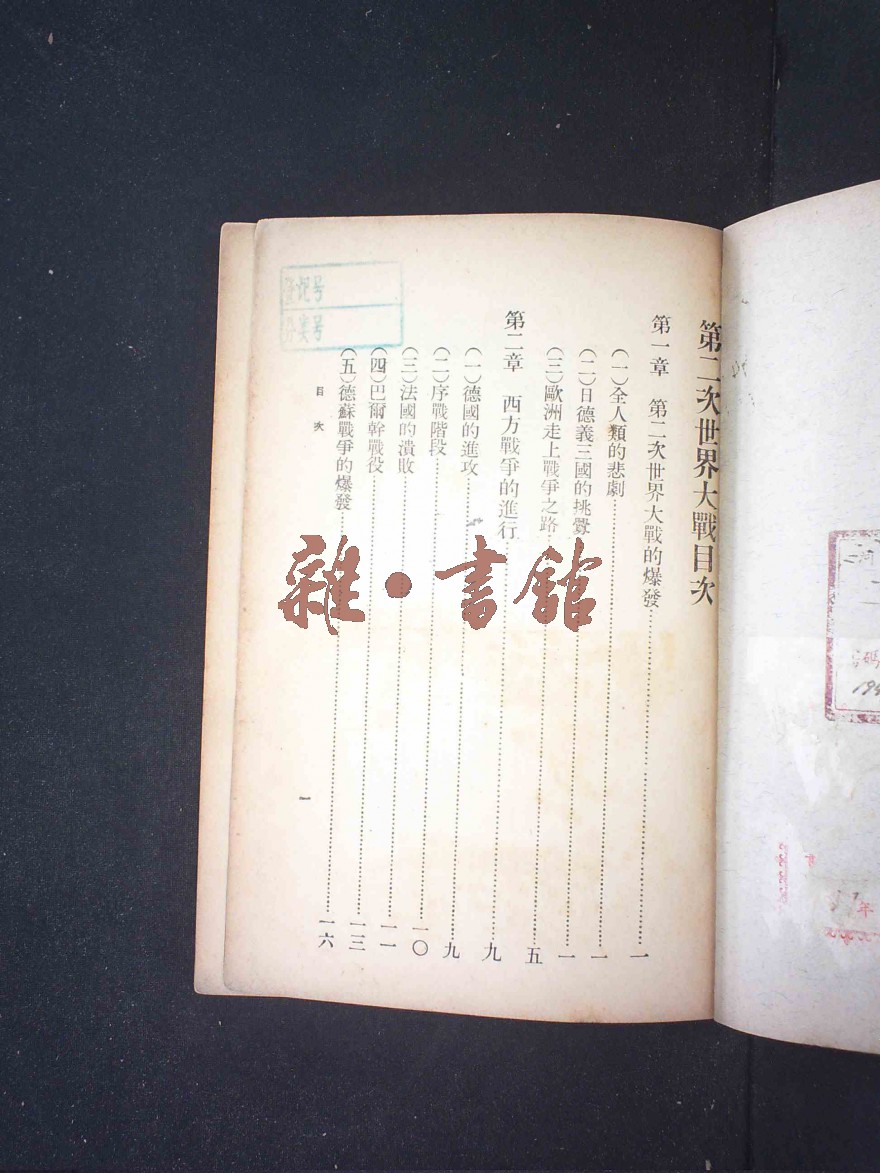 第二次世界大戰目次
第一章 第二次世界大戰的爆發 一
(一)全人類的悲劇 一
(二)日德義三國的挑釁 一
(三)歐洲走上戰爭之路 五
第二章 西方戰爭的進行 九
(一)德國的進攻 九
(二)序戰階段 一〇
(三)法國的潰敗 一一
(四)巴爾幹戰役 一三
(五)德蘇戰爭的爆發 一六
目次
一
登记号
分类号
雜·書館
年